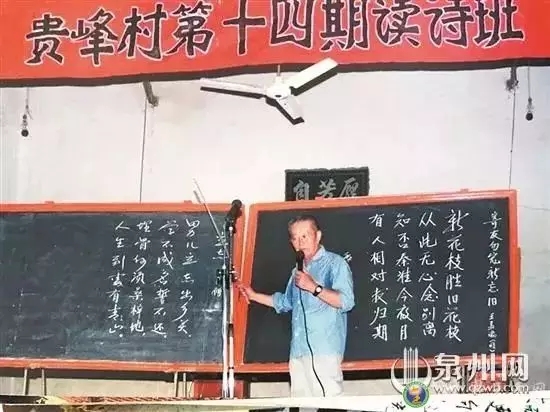 贵峰村第十四期读诗班
新花枝胜旧花枝
从此无心念别离
知否秦淮今夜月
有人相对数归期
男儿立志出乡关
学不成名誓不还
埋骨何须桑梓地
人生到处有青山。
泉州网
www.qzwb.com